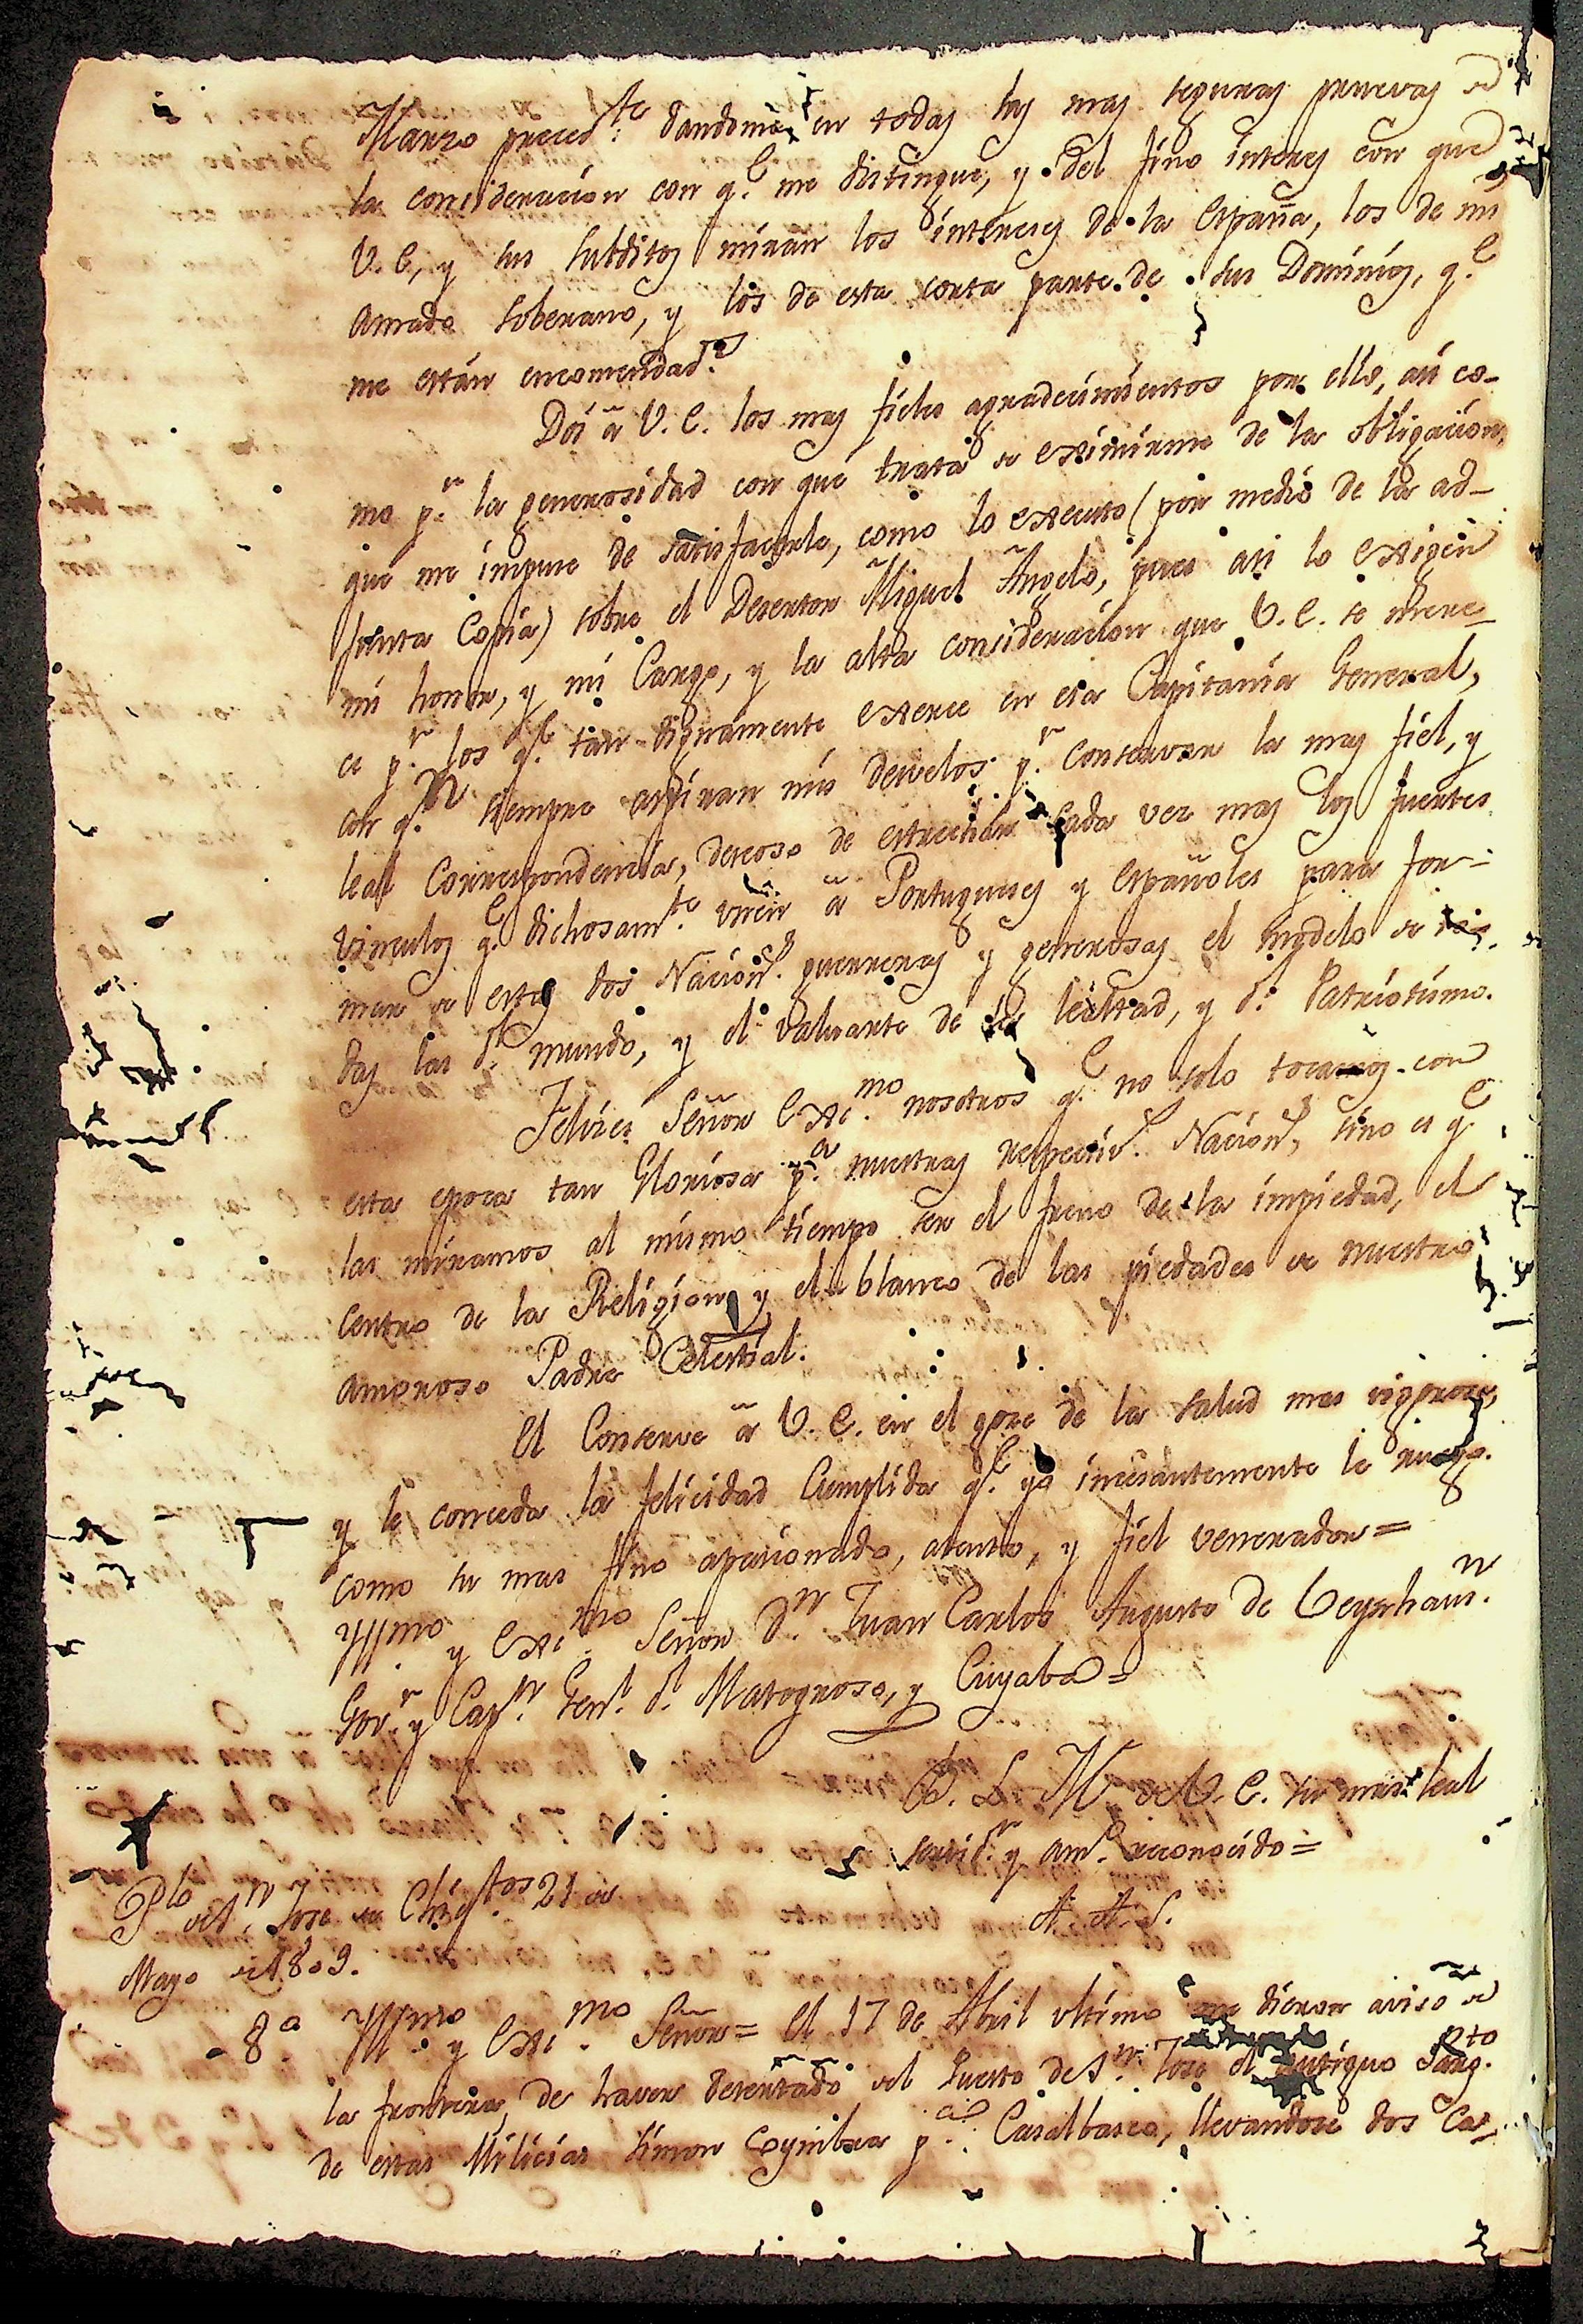 Marzo preced.te dandome en todas las mas seguras pruevas de
la consideracion con q.e me distingue, y del fino interes con que
V. E, y sus subditos miran los intereses de la España, los de mi
amado soberano, y los de esta corta parte de sus Dominios, q.e
me están encomendad.s
Doi à V. E. los mas fieles agradecimientos por ello, asi co-
mo p.r la generosidad con que trata de eximirme de la obligacion,
que me impuse de satisfacerle, como lo executo (por medio de la ad-
junta Copia) sobre el Desertor Miguel Angelo, pues asi lo exigen
mi honor, y mi Cargo, y la alta consideracion que V. E. se mere-
ce p.r los q.e tan dignamente exerce en esa Capitanía General,
con q.n siempre aspiran mis desvelos p.r conservar la mas fiel, y
leal Correspondencia, deseoso de estrechar cada vez mas los fuertes
vinculos q.e dichosam.te unen à Portugueses y Españoles para for-
mar de estas dos Nacion.s guerreras y generosas el modelo de to-
das las d.l mundo, y el valuarte de la lealtad, y d.l Patriotismo.
Felices Señor Exc.mo nosotros q.e no solo tocamos con
esta epoca tan Gloriosa p.a nuestras respectiv.s Nacion.s, sino es q.e
las miramos al mismo tiempo ser el freno de la impiedad, el
centro de la Religion, y el blanco de las piedades de nuestro
amoroso Padre Celestial.
El Conserve à V. E. en el goze de la salud mas vigorosa,
y le conceda la felicidad Cumplida q.e yo incesantemente le ruego.
como su mas fino apasionado, atento, y fiel venerador =
Yll.mo y Exc.mo Señor D.n Juan Carlos Augusto de Oeynhaus.n
Gov.r y Cap.n Gen.l d.l Matogroso, y Cuyabá =
B. L. M. de V. E. su mas leal
servid.r y am.o reconocido =
A. A. S.
P.lo de S.n Jose de Chiq.tos 21 de
Mayo de 1809.
8a Yll.mo y Exc.mo Señor = El 17 de Abril ultimo me dieron aviso de
la frontera, de haver desertado del Puesto de S.n Jose el antiguo Sarg.to
de estas Milicias Simon Coymbra p.a Casalbasco, llevandose dos Ca-